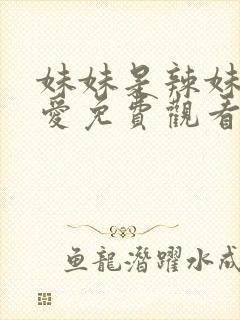 妹妹是辣妹
愛免費觀看
魚龍潛躍水成